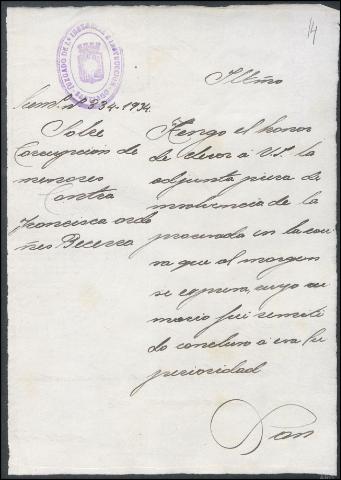 14
JUZGADO DE 1ª INSTANCIA E INSTRUCCION
Iltmo
Sum.º nº 334-1934.
Sobre
Corrupción de
menores
Contra
Francisca ordo
ñes Becerra
Tengo el honor
de elevar á V.S. la
adjunta pieza de
insolvencia de la
procesada en la cau
sa que al margen
se expresa, cuyo su
mario fué remiti
do concluso á esa Su
perioridad
Dios